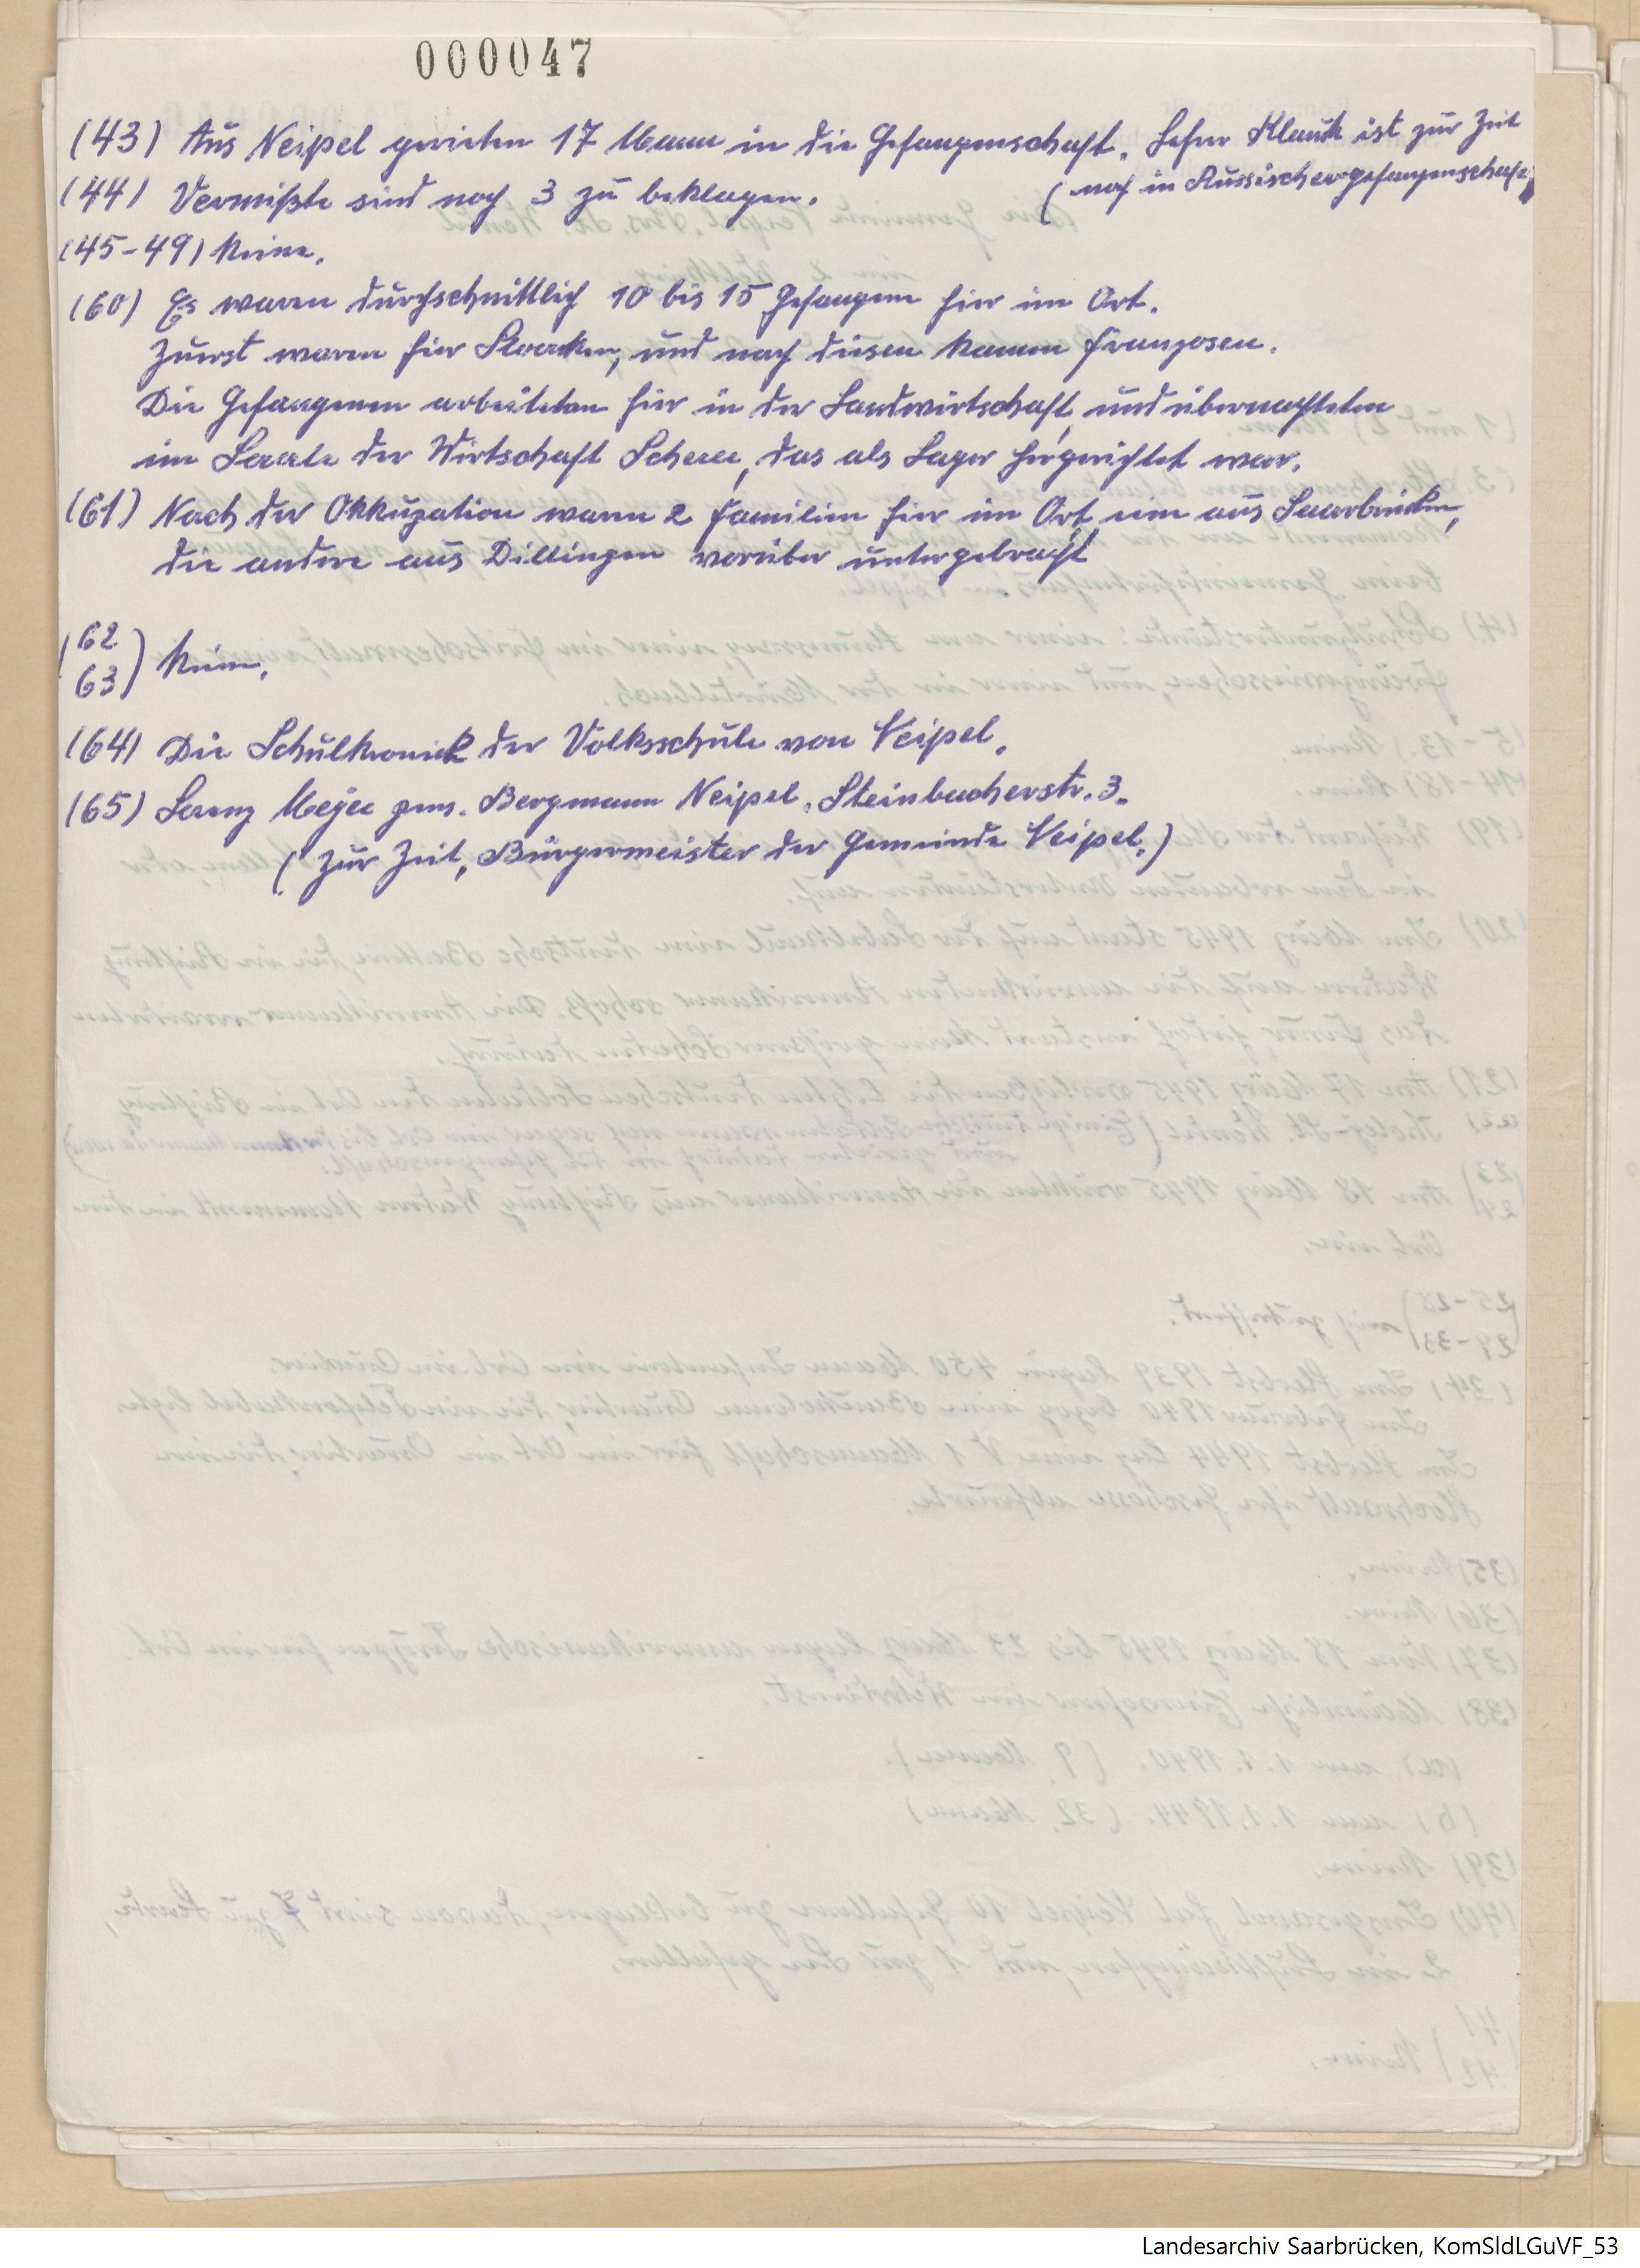 000047
(43) Aus Neipel gerieten 17 Mann in die Gefangenschaft. Lehrer Klauck ist zur Zeit
(noch in Russischergefangenschaft)
(44) Vermißte sind noch 3 zu beklagen.
(45-49) Keine.
(60) Es waren durchschnittlich 10 bis 15 Gefangene hier im Ort.
Zuerst waren hier und nach diesen kamen Franzosen.
Die Gefangenen arbeiteten hier in der Landwirtschaft und übernachteten
im Saale der Wirtschaft Scherer, das als Lager hergerichtet war.
(61) Nach der Okkupation waren 2 Familien hier im Ort, eine aus Saarbrücken,
die andere aus Dillingen vorüber untergebracht
(62
63) Keine.
(64) Die Schulkronick der Volksschule von Neipel.
(65) Lorenz Meyer pens. Bergmann Neipel, Steinbacherstr. 3.
(zur Zeit, Bürgermeister der Gemeinde Neipel.)
Landesarchiv Saarbrücken, KomSldLGuVF_53